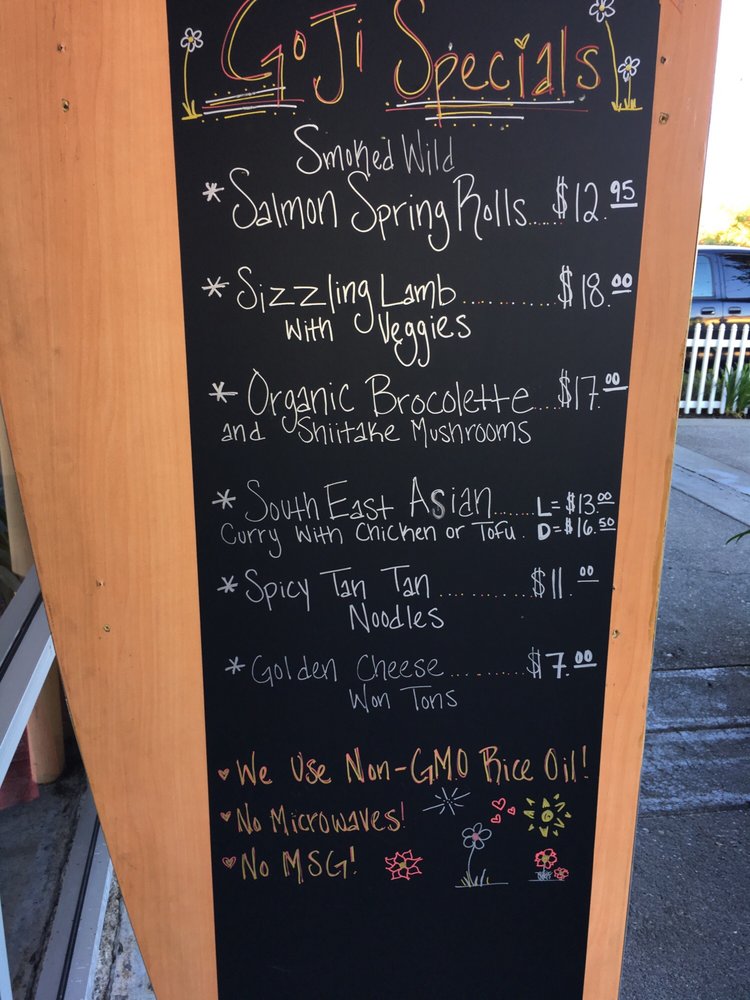 GoJi Specials
Smoked Wild
* Salmon Spring Rolls..... $12.95
* Sizzling Lamb............ $18.00
with Veggies
* Organic Brocolette.... $17.00
and Shiitake Mushrooms
* South East Asian....... L=$13.00
Curry with Chicken or Tofu. D=$16.50
* Spicy Tan Tan........... $11.00
Noodles
* Golden Cheese.......... $7.00
Won Tons
We Use Non-GMO Rice Oil!
No Microwaves!
No MSG!